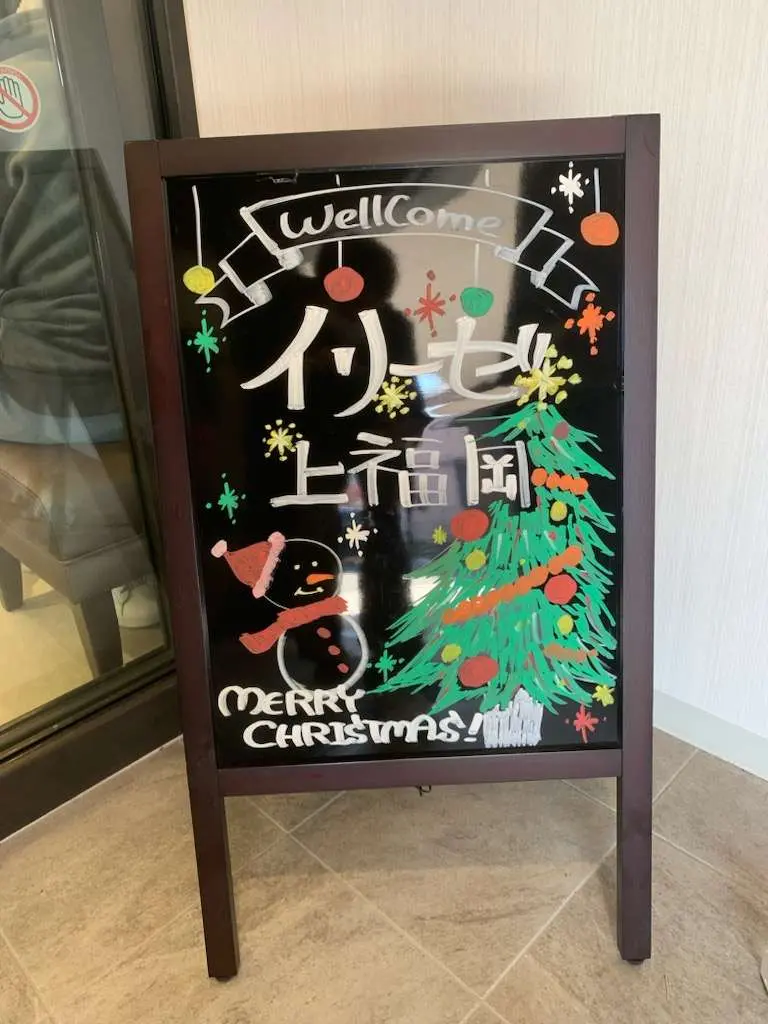 WellCome
イリーゼ
上福岡
MERRY
CHRISTMAS!